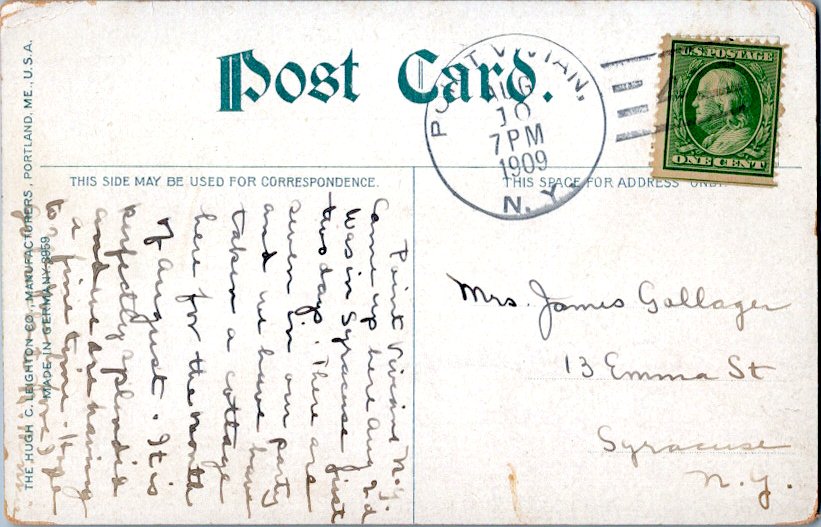 Post Card.
POINT VIVIAN,
AUG
10
7 PM
1909
N. Y.
U.S. POSTAGE
ONE CENT
THIS SIDE MAY BE USED FOR CORRESPONDENCE.
THIS SPACE FOR ADDRESS ONLY.
THE HUGH C. LEIGHTON CO., MANUFACTURERS, PORTLAND, ME., U.S.A.
MADE IN GERMANY 8959
Point Vivian N.Y.
Came up here Aug 2d
was in Syracuse first
two days. There are
seven in our party
and we have have
taken a cottage
here for the month
of August. It is
perfectly splendid
and we are having
a fine time. Hope
to
Mrs. James Gallager
13 Emma St
Syracuse
N.Y.